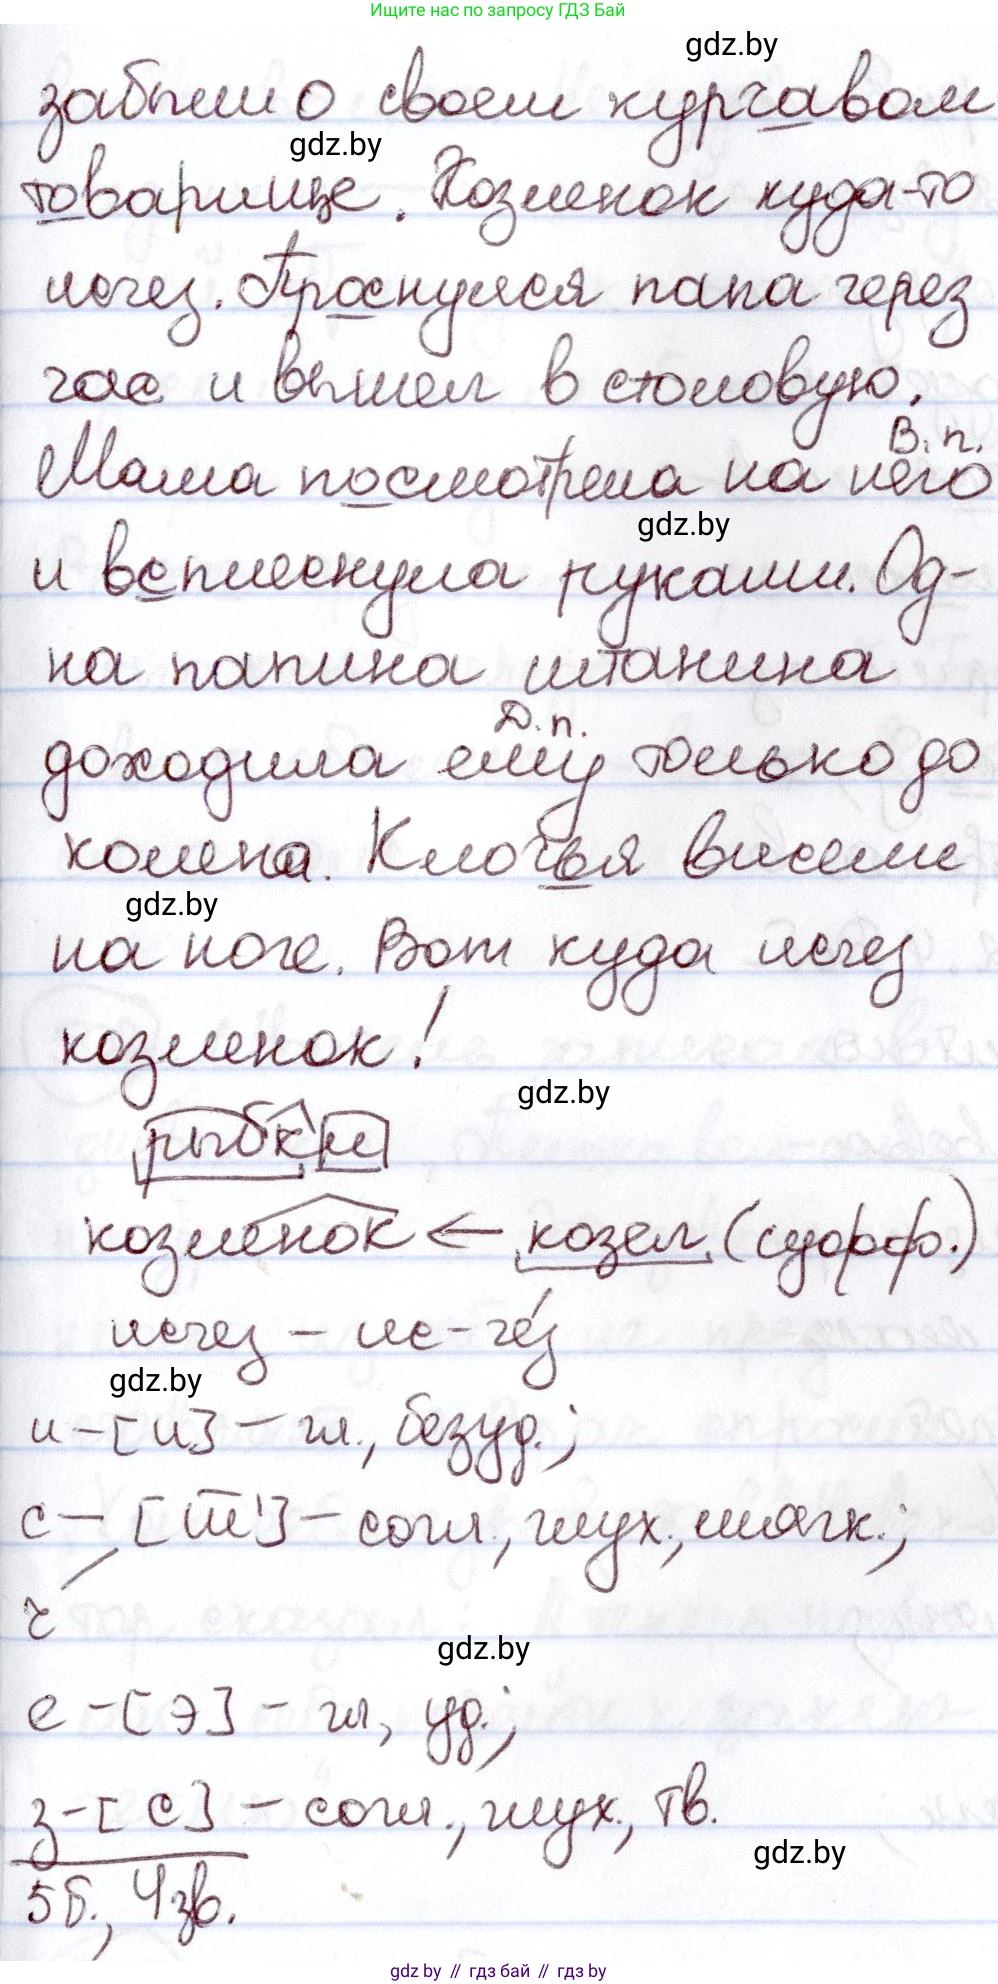 Ищите нас по запросу ГДЗ Бай
gdz.by
забыли о своем курчавом
gdz.by
товарище. Козленок куда-то
исчез. Проснулся папа через
час и вышел в столовую.
В. п.
Мама посмотрела на него
gdz.by
и всплеснула руками. Од-
на папина штанина
Д. п.
доходила ему только до
колена. Клочья висели
gdz.by
на ноге. Вот куда исчез
козленок!
gdz.by
рыбки
козленок ← козел (суфф.)
исчез – ис-че́з
gdz.by
и – [и] – гл., безуд.;
с – [ш̅'] – согл., глух., мягк.;
ч
gdz.by
е – [э] – гл., уд.;
з – [с] – согл., глух., тв.
gdz.by
5 б., 4 зв.
gdz by // гдз бай // gdz by